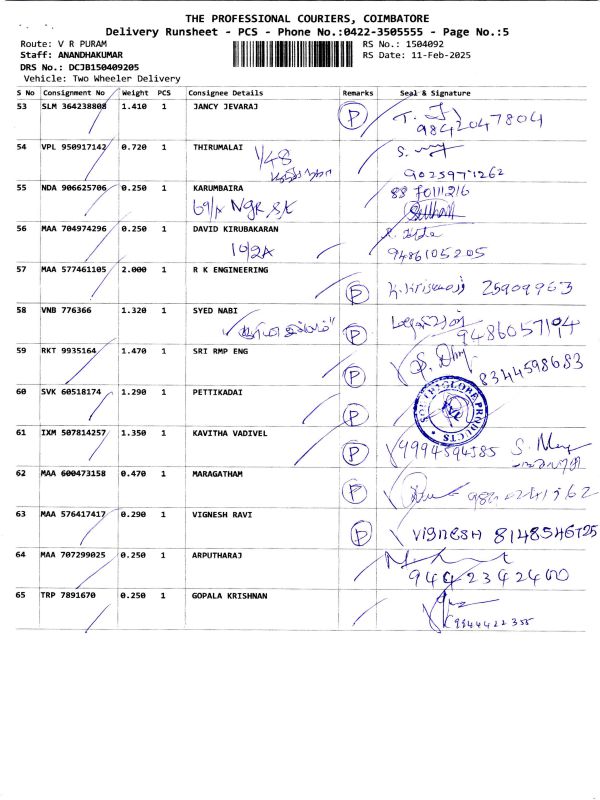 THE PROFESSIONAL COURIERS, COIMBATORE
Delivery Runsheet - PCS - Phone No.:0422-3505555 - Page No.:5
Route: V R PURAM RS No.: 1504092
Staff: ANANDHAKUMAR RS Date: 11-Feb-2025
DRS No.: DCJB150409205
Vehicle: Two Wheeler Delivery
S No Consignment No Weight PCS Consignee Details Remarks Seal & Signature
53 SLM 364238808 1.410 1 JANCY JEVARAJ
P T. J
9842047804
54 VPL 950917142 0.720 1 THIRUMALAI
1/48
9025971262
55 NDA 906625706 0.250 1 KARUMBAIRA
69/A NGR St
56 MAA 704974296 0.250 1 DAVID KIRUBAKARAN
19/2A 9486105205
57 MAA 577461105 2.000 1 R K ENGINEERING
P 25909963
58 VNB 776366 1.320 1 SYED NABI
P 9486057194
59 RKT 9935164 1.470 1 SRI RMP ENG
P 8344598683
60 SVK 60518174 1.290 1 PETTIKADAI
P GLOBE PRODUCTS
61 IXM 507814257 1.350 1 KAVITHA VADIVEL
P 9994594585
62 MAA 600473158 0.470 1 MARAGATHAM
P
63 MAA 576417417 0.290 1 VIGNESH RAVI
P VIGNESH 8148546725
64 MAA 707299025 0.250 1 ARPUTHARAJ
9442342400
65 TRP 7891670 0.250 1 GOPALA KRISHNAN
9344422355